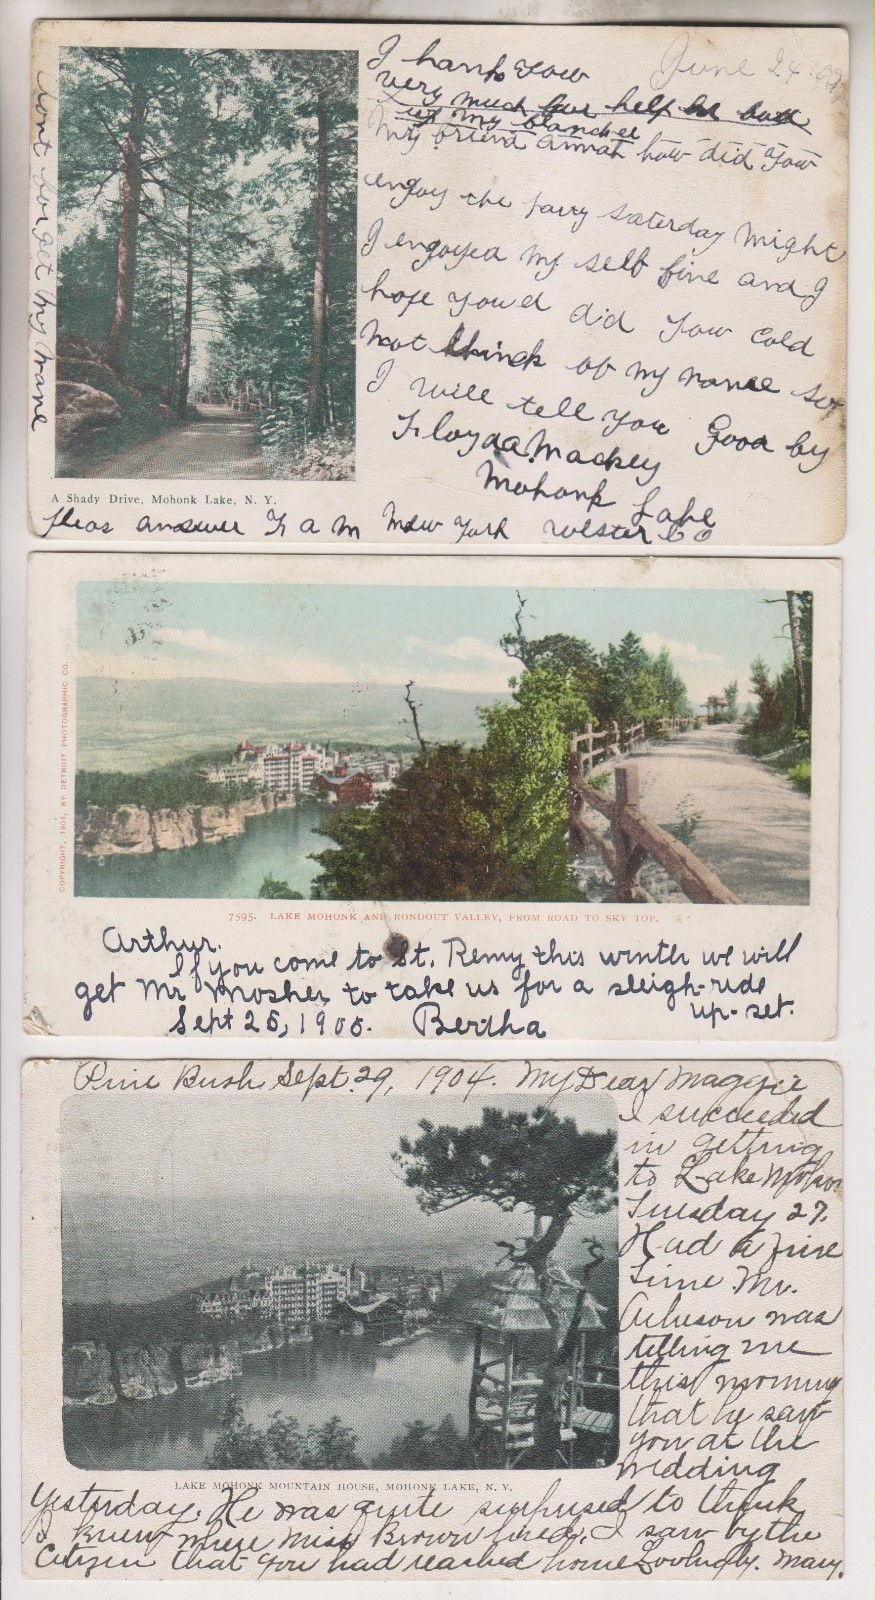 I thank you
June 24
very much
up my
My friend annah how did you
enjoy the fairy saterday night
I engoyed my self fine and I
hope you d did you cold
not think of my name so
I will tell you Good by
Floyda Mackey
Mohonk Lake
pleas answer F a M New York Ulster Co
dont forget my name
A Shady Drive, Mohonk Lake, N. Y.
COPYRIGHT, 1904, BY DETROIT PHOTOGRAPHIC CO.
7595. LAKE MOHONK AND RONDOUT VALLEY, FROM ROAD TO SKY TOP.
Arthur.
If you come to St. Remy this winter we will
get Mr Mosher to take us for a sleigh-ride
up-set.
Sept 25, 1905. Bertha
Pine Bush Sept. 29, 1904. My Dear Maggie
I succeeded
in getting
to Lake Mohon
Tuesday 27.
Had a fine
time Mr.
was
telling me
this morning
that he saw
you at the
wedding
LAKE MOHONK MOUNTAIN HOUSE, MOHONK LAKE, N. Y.
Yesterday. He was quite surprised to think
I knew where Miss Brown lived. I saw by the
Citizen that you had reached home Lovingly. Mary.